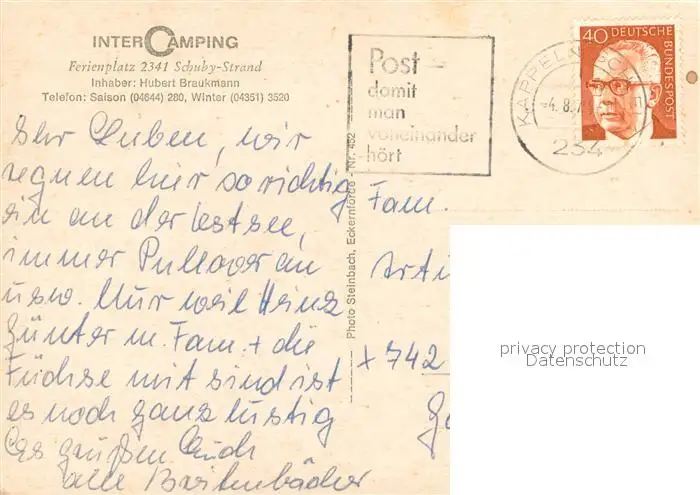 INTER CAMPING
Ferienplatz 2341 Schuby-Strand
Inhaber: Hubert Braukmann
Telefon: Saison (04644) 280, Winter (04351) 3520
Post -
damit
man
voneinander
hört
KAPPELN
-4.8.
234
40 DEUTSCHE
BUNDESPOST
Ihr Lieben, wir
regnen hier so richtig
ein an der Ostsee,
immer Pullover an
usw. Nur weil Heinz
Günter m. Fam. + die
Füchse mit sind ist
es noch ganz lustig
Es grüßen Euch
alle Breitenbächer
Photo Steinbach, Eckernförde - Nr. 452
Fam.
Arti
x 742
privacy protection
Datenschutz